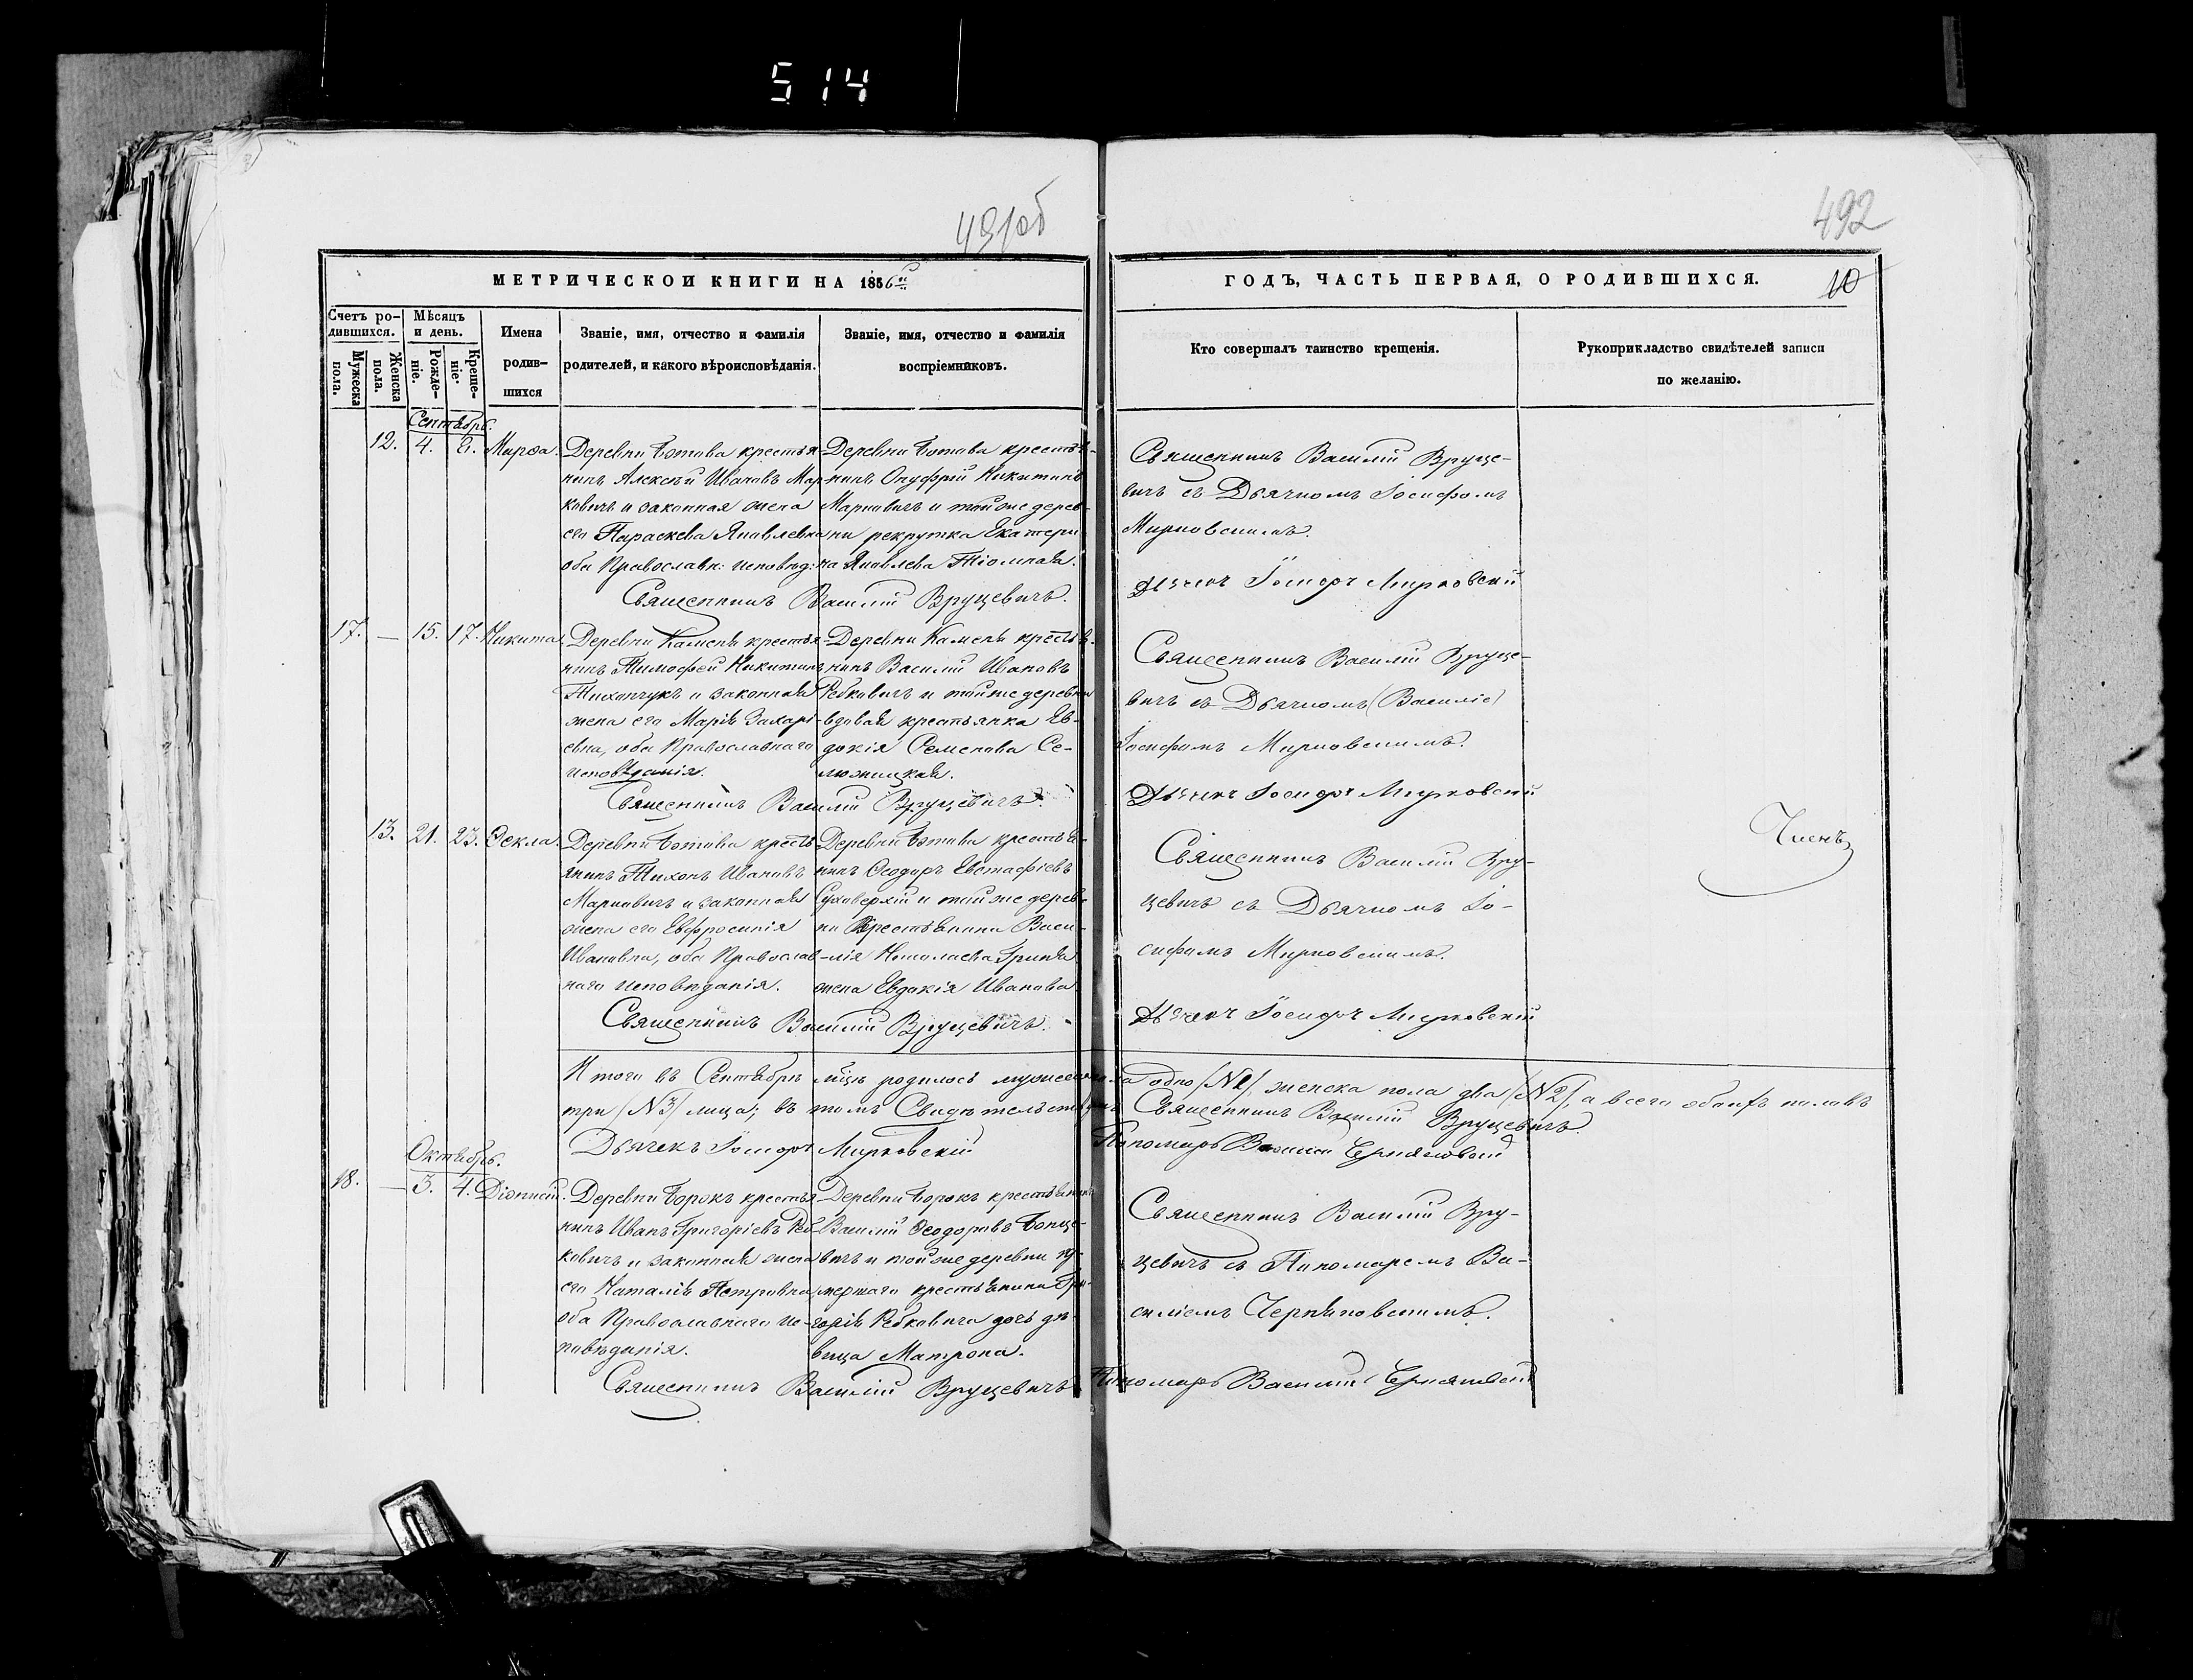 514
491об
492
МЕТРИЧЕСКОЙ КНИГИ НА 1856й
ГОДЪ, ЧАСТЬ ПЕРВАЯ, О РОДИВШИХСЯ.
10
Счетъ ро-
дившихся.
Мужеска
пола.
Женска
пола.
Мѣсяцъ
и день.
Рожде-
ніе.
Креще-
ніе.
Имена
родив-
шихся
Званіе, имя, отчество и фамилія
родителей, и какого вѣроисповѣданія.
Званіе, имя, отчество и фамилія
воспріемниковъ.
Кто совершалъ таинство крещенія.
Рукоприкладство свидѣтелей записи
по желанію.
Сентябрь.
12. 4.
Деревни Ботова крестья-
нинъ Алексѣй Ивановъ Мар-
ковичъ и законная жена
его Параскева Яковлевна
оба Православн: исповѣд:
Деревни Ботова крестья-
нинъ Онуфрій Никитинъ
Марковичъ и тойже дерев-
ни рекрутка Екатери-
на Яковлева
Священникъ Василій Вруцевичъ.
Священникъ Василій Вруце-
вичъ съ Дьячкомъ Іосифомъ
Мирковскимъ.
Дьячекъ Іосифъ Мирковскій
17. — 15. 17. Никита.
Деревни Камень крестья-
нинъ Тимофей Никитинъ
Тихончукъ и законная
жена его Марія Захарі-
евна, оба Православнаго
исповѣданія.
Деревни Камень крестья-
нинъ Василій Ивановъ
Ребковичъ и тойже деревни
вдовая крестьянка Ев-
докія Семенова Се-
Священникъ Василій Вруцевичъ.
Священникъ Василій Вруце-
вичъ съ Дьячкомъ (Василіе)
Іосифомъ Мирковскимъ.
Дьячекъ Іосифъ Мирковскій
13. 21. 23. Ѳекла.
Деревни Ботова кресть-
янинъ Тихонъ Ивановъ
Марковичъ и законная
жена его Евфросинія
Ивановна, оба Православ-
наго исповѣданія.
Деревни Ботова крестья-
нинъ Ѳеодоръ Евстафіевъ
Суховерхій и тойже дерев-
ни Крестьянина Васи-
лія Николаева Гринка
жена Евдокія Иванова.
Священникъ Василій Вруцевичъ.
Священникъ Василій Вру-
цевичъ съ Дьячкомъ Іо-
сифомъ Мирковскимъ.
Дьячекъ Іосифъ Мирковскій
Членъ
Итого въ Сентябрѣ мѣцѣ родилось мужеска пола одно (№1), женска пола два (№2), а всего обоихъ половъ
три (№3) лица; въ томъ Свидѣтельствуемъ Священникъ Василій Вруцевичъ.
Дьячекъ Іосифъ Мирковскій
Пономарь Василій Черняковскій
Октябрь.
18. — 3. 4. Діонисій.
Деревни Борокъ крестья-
нинъ Иванъ Григоріевъ Реб-
ковичъ и законная жена
его Наталія Петровна
оба Православнаго ис-
повѣданія.
Деревни Борокъ крестьянинъ
Василій Ѳеодоровъ
вичъ и тойже деревни
мершаго крестьянина Гри-
горія Ребковича дочь дѣ-
вица Матрона.
Священникъ Василій Вруцевичъ
Священникъ Василій Вру-
цевичъ съ Пономаремъ Ва-
силіемъ Черняковскимъ.
Пономарь Василій Черняковскій